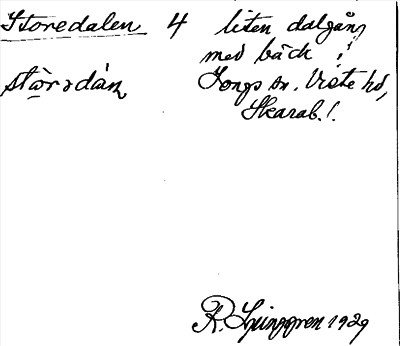 Storedalen 4 liten dalgång
med bäck i
Longs sn. Viste hd,
Skarab. l.
R. Ljunggren 1929